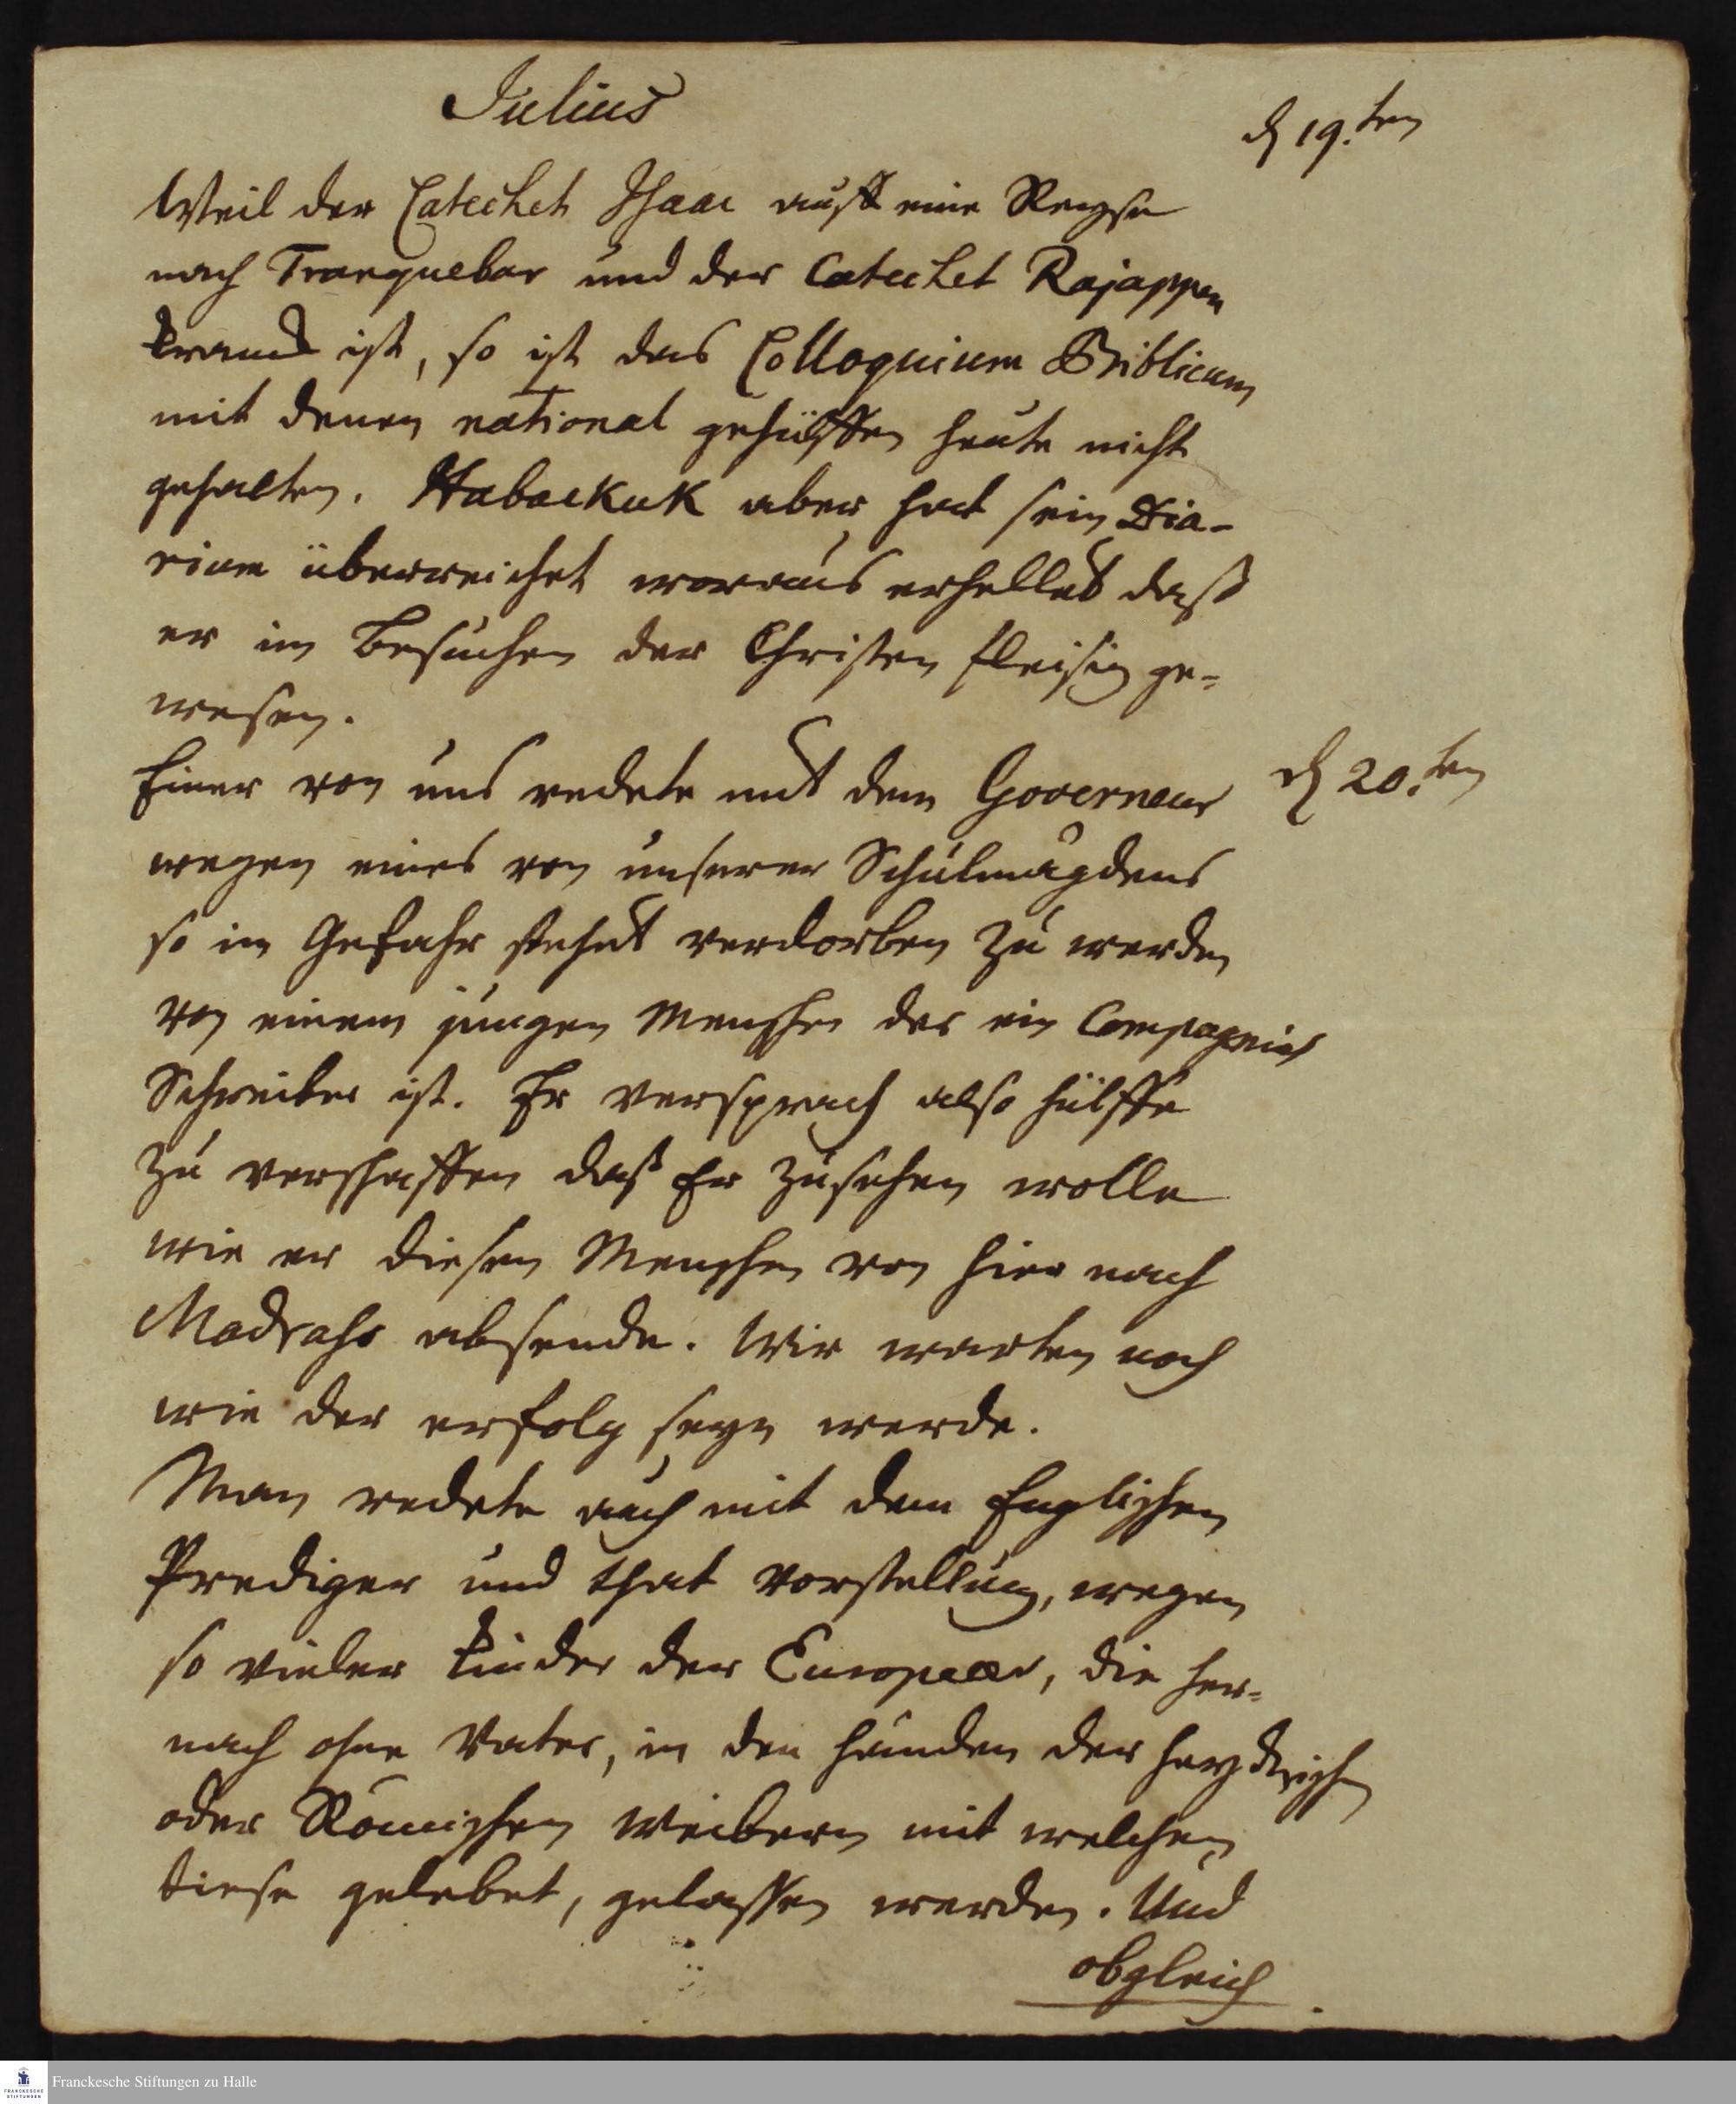 Julius
d 19.ten
Weil der Catechet Isaac auff eine Reyse
nach Tranquebar und der Catechet Rajappen
kranck ist, so ist das Colloquium Biblicum
mit denen national gehülffen heute nicht
gehalten. Habackuk aber hat sein Dia-
rium überreichet woraus erhellet daß
er im Besuchen der Christen fleisig ge-
wesen.
Einer von uns redete mit dem Governeur
d 20.ten
wegen eines von unserer Schulmägdens
so in Gefahr stehet verdorben zu werden
von einem jungen Menschen der ein Compagnies
Schreiber ist. Er versprach also hülffe
zu verschaffen daß Er zusehen wolle
wie er diesen Menschen von hier nach
Madrass absende. Wir warten noch
wie der erfolg seyn werde.
Man redete auch mit dem Englischen
Prediger und that Vorstellung, wegen
so vieler Kinder der Europeer, die her-
nach ohne Vater, in den händen der heydnischen
oder Römischen Weibern mit welchen
diese gelebet, gelassen werden. Und
obgleich
Franckesche Stiftungen zu Halle
FRANCKESCHE
STIFTUNGEN